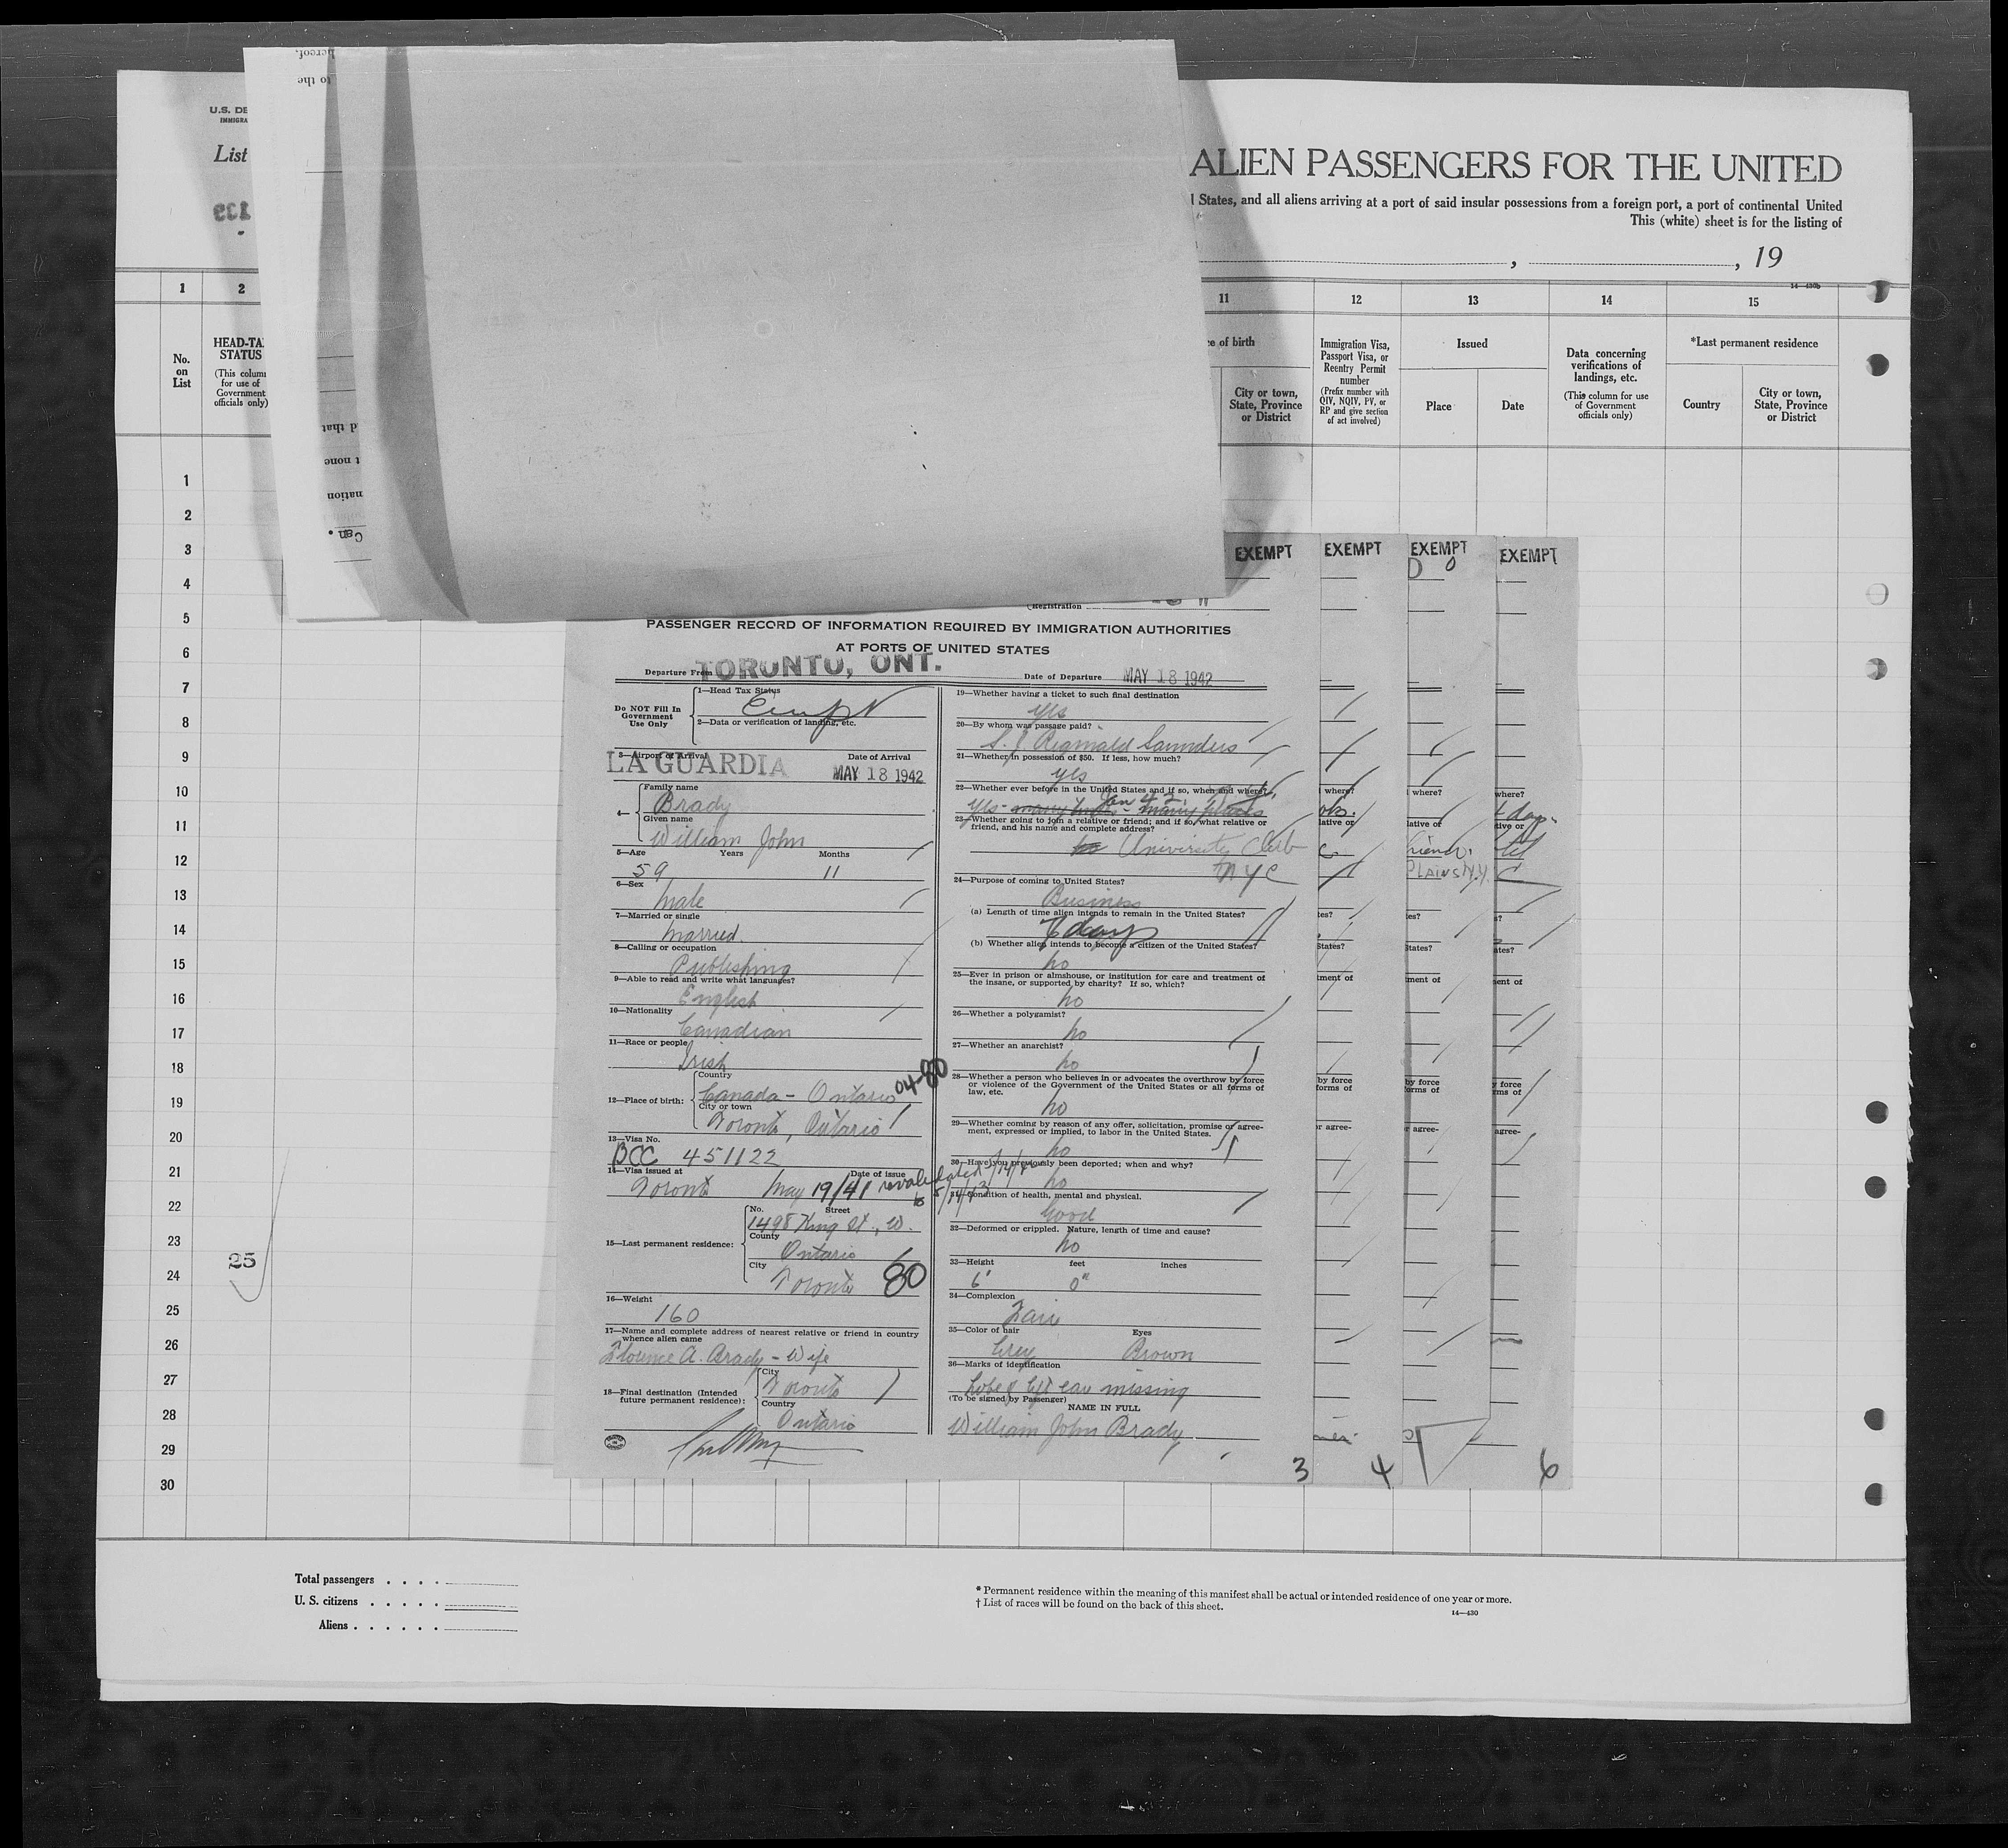 hereof.
to the
U.S. DE
IMMIGRA
List
ALIEN PASSENGERS FOR THE UNITED
States, and all aliens arriving at a port of said insular possessions from a foreign port, a port of continental United
This (white) sheet is for the listing of
, , 19
14—430b
1 2 11 12 13 14 15
No. on List
HEAD-TA
STATUS
(This colum
for use of
Government
officials only)
ce of birth
City or town,
State, Province
or District
Immigration Visa,
Passport Visa, or
Reentry Permit
number
(Prefix number with
QIV, NQIV, PV, or
RP and give section
of act involved)
Issued
Place
Date
Data concerning
verifications of
landings, etc.
(This column for use
of Government
officials only)
*Last permanent residence
Country
City or town,
State, Province
or District
d that
t none
nation
Can.
1
2
3
4
5
6
7
8
9
10
11
12
13
14
15
16
17
18
19
20
21
22
23
24
25
26
27
28
29
30
25
EXEMPT EXEMPT EXEMPT EXEMPT
Registration
PASSENGER RECORD OF INFORMATION REQUIRED BY IMMIGRATION AUTHORITIES
AT PORTS OF UNITED STATES
Departure From TORONTO, ONT. Date of Departure MAY 18 1942
Do NOT Fill In
Government
Use Only
1—Head Tax Status
2—Data or verification of landing, etc.
3—Airport of Arrival Date of Arrival
LA GUARDIA MAY 18 1942
4— Family name
Brady
Given name
William John
5—Age Years Months
59 11
6—Sex
Male
7—Married or single
Married.
8—Calling or occupation
Publishing
9—Able to read and write what languages?
English
10—Nationality
Canadian
11—Race or people
Irish
12—Place of birth: Country
Canada - Ontario 04-80
City or town
Toronto, Ontario
13—Visa No.
BCC 451122
14—Visa issued at Date of issue
Toronto May 19/41 revalidated
15—Last permanent residence:
No. Street
1498 King St., W.
County
Ontario
City
Toronto 80
16—Weight
160
17—Name and complete address of nearest relative or friend in country
whence alien came
Florence A. Brady - Wife
18—Final destination (Intended
future permanent residence):
City
Toronto
Country
Ontario
19—Whether having a ticket to such final destination
yes
20—By whom was passage paid?
S. J. Reginald Saunders
21—Whether in possession of $50. If less, how much?
yes
22—Whether ever before in the United States and if so, when and where?
yes - Jan 42. many places
23—Whether going to join a relative or friend; and if so, what relative or
friend, and his name and complete address?
no University Club
NYC
24—Purpose of coming to United States?
Business
(a) Length of time alien intends to remain in the United States?
days
(b) Whether alien intends to become a citizen of the United States?
no
25—Ever in prison or almshouse, or institution for care and treatment of
the insane, or supported by charity? If so, which?
no
26—Whether a polygamist?
no
27—Whether an anarchist?
no
28—Whether a person who believes in or advocates the overthrow by force
or violence of the Government of the United States or all forms of
law, etc.
no
29—Whether coming by reason of any offer, solicitation, promise or agree-
ment, expressed or implied, to labor in the United States.
no
30—Have you previously been deported; when and why?
no
31—Condition of health, mental and physical.
Good
32—Deformed or crippled. Nature, length of time and cause?
no
33—Height feet inches
6' 0"
34—Complexion
Fair
35—Color of hair Eyes
Grey Brown
36—Marks of identification
Lobe of left ear missing
(To be signed by Passenger)
NAME IN FULL
William John Brady
3 4 6
where? where? where?
lative or lative or tive or
friend.
PLAINS N.Y.
tes? tes? s?
States? States? ates?
tment of ment of ent of
by force by force y force
forms of orms of rms of
or agree- r agree- agree-
Total passengers . . . .
U. S. citizens . . . . .
Aliens . . . . . .
* Permanent residence within the meaning of this manifest shall be actual or intended residence of one year or more.
† List of races will be found on the back of this sheet.
14—430